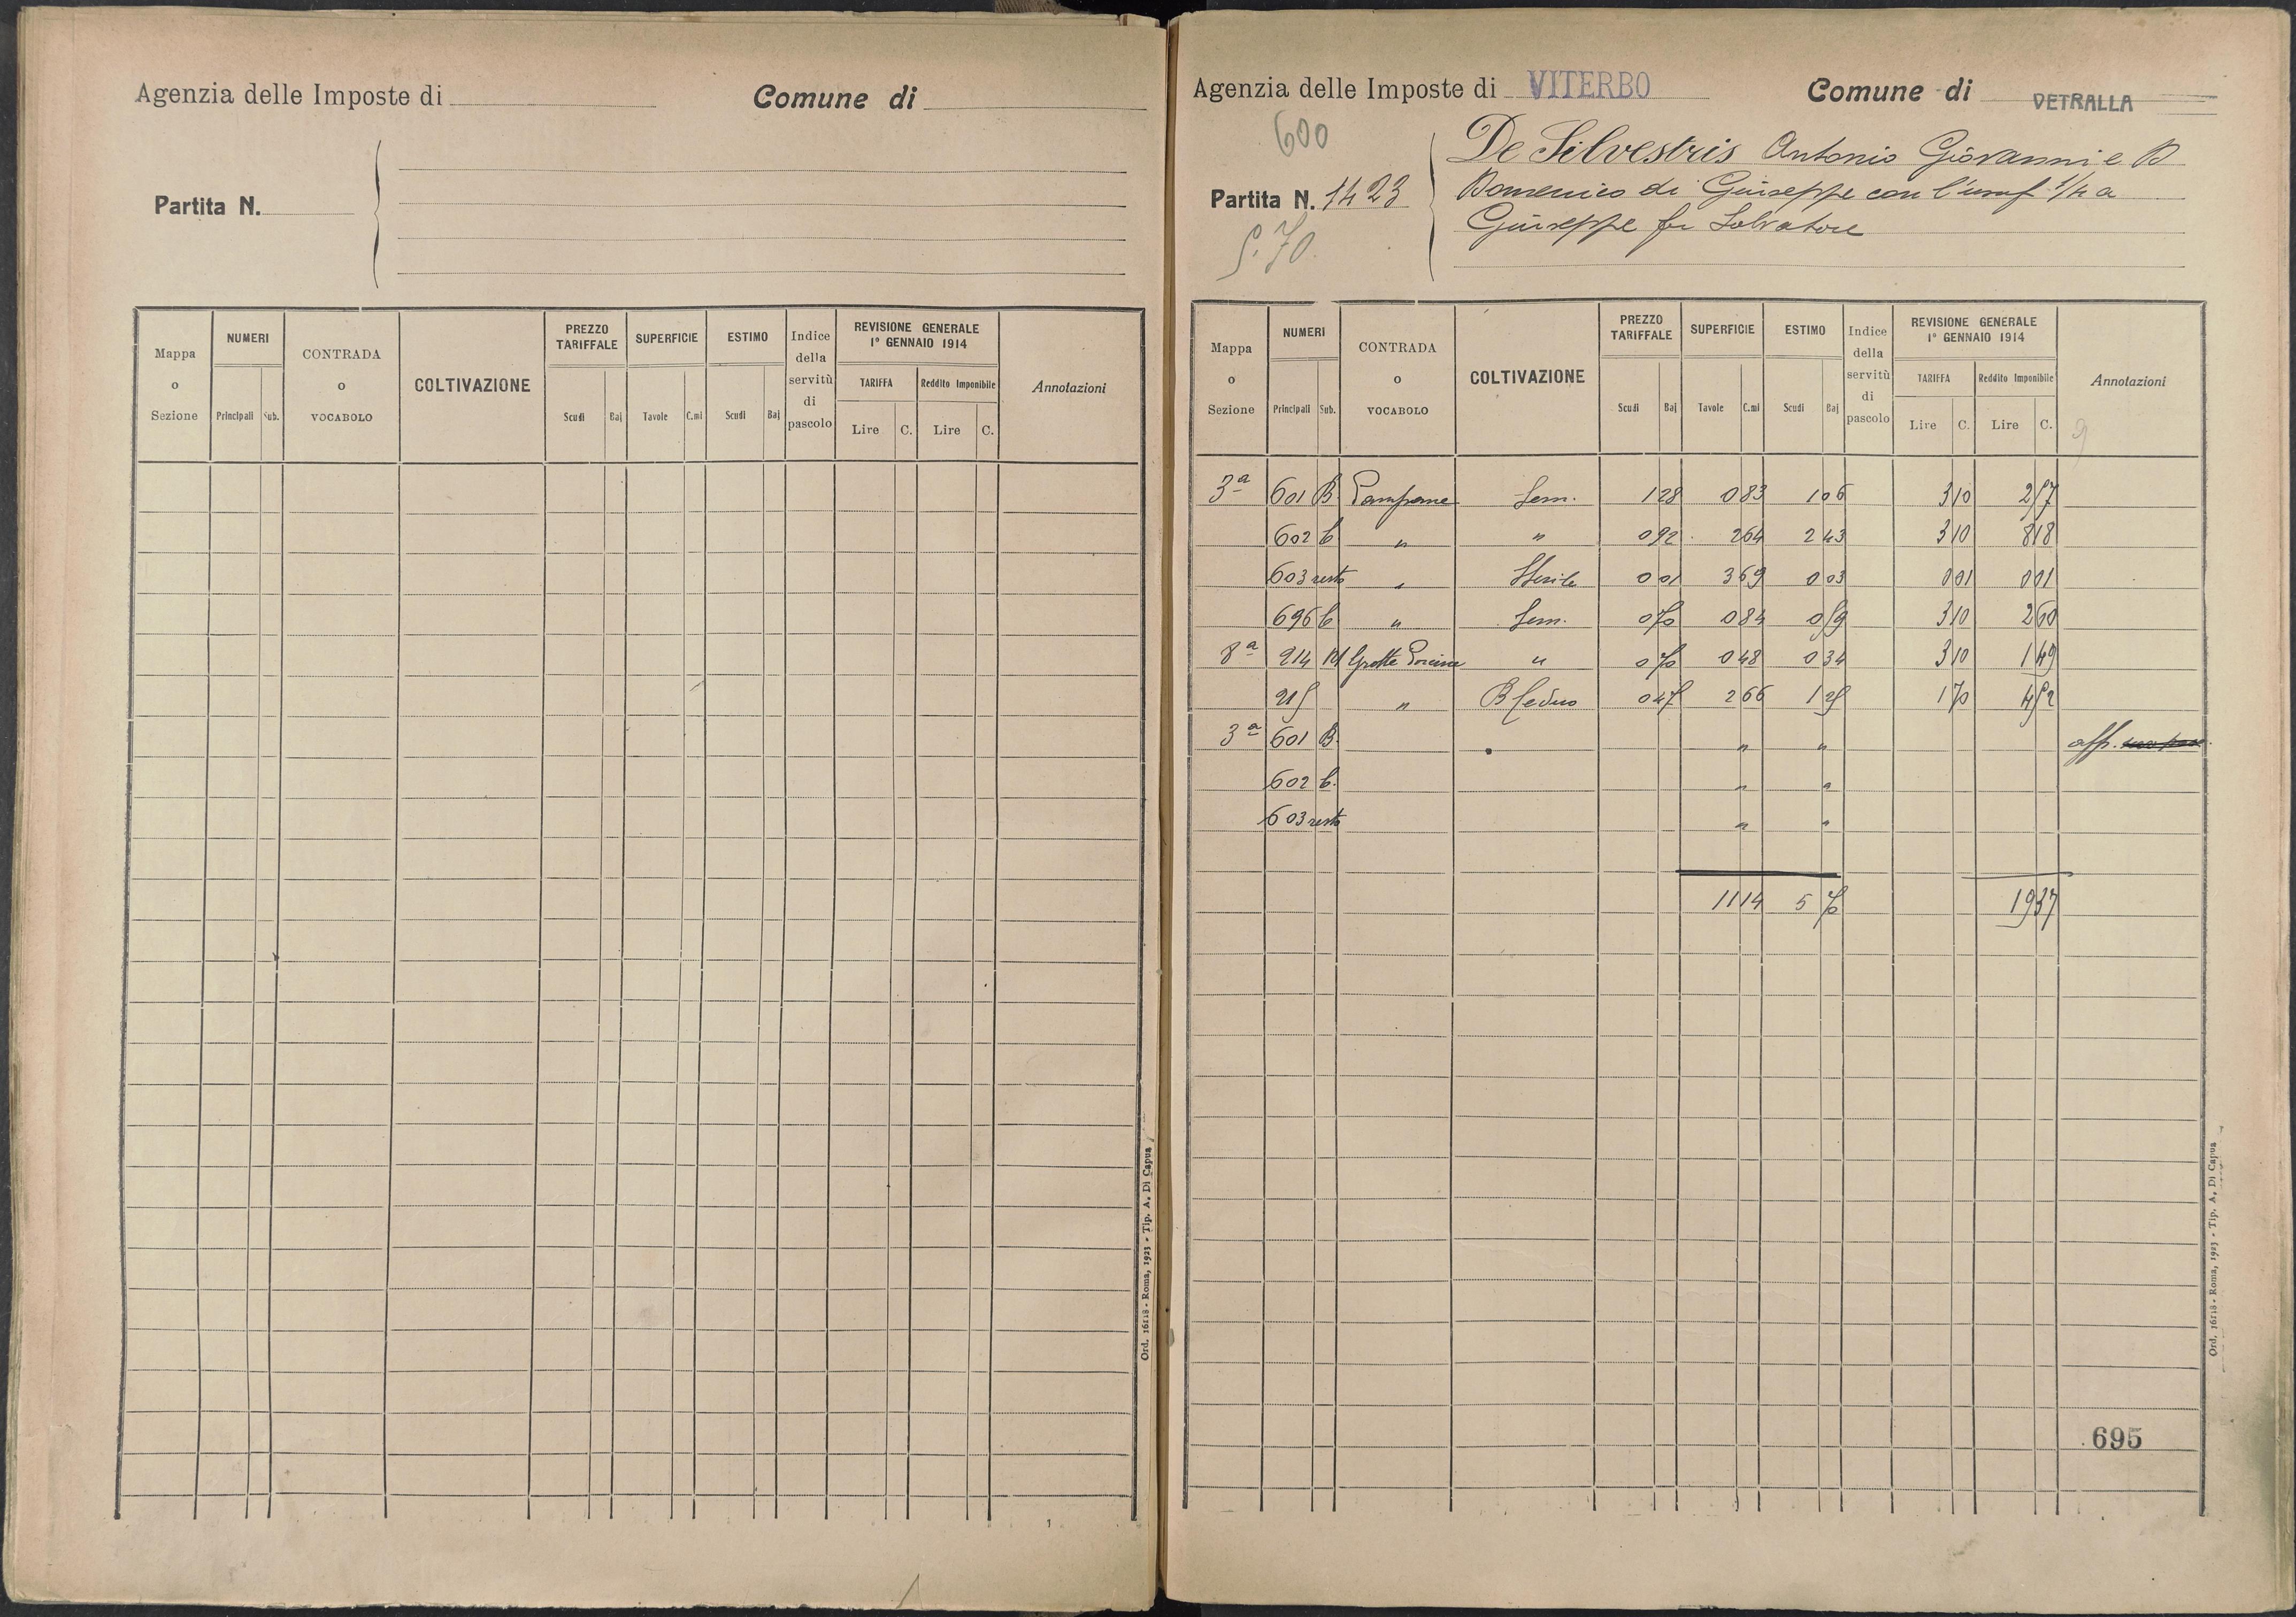 Agenzia delle Imposte di
Comune di
Partita N.
Mappa o Sezione
NUMERI
Principali
Sub.
CONTRADA o VOCABOLO
COLTIVAZIONE
PREZZO TARIFFALE
Scudi
Baj
SUPERFICIE
Tavole
C.mi
ESTIMO
Scudi
Baj
Indice della servitù di pascolo
REVISIONE GENERALE
1° GENNAIO 1914
TARIFFA
Reddito Imponibile
Lire
C.
Lire
C.
Annotazioni
Ord. 16118 - Roma, 1923 - Tip. A. Di Capua
1
Agenzia delle Imposte di VITERBO
Comune di VETRALLA
600
Partita N. 1423
5.70
De Silvestris Antonio Giovanni e B
Domenico di Giuseppe con l'usuf 1/4 a
Giuseppe fu Salvatore
Mappa o Sezione
NUMERI
Principali
Sub.
CONTRADA o VOCABOLO
COLTIVAZIONE
PREZZO TARIFFALE
Scudi
Baj
SUPERFICIE
Tavole
C.mi
ESTIMO
Scudi
Baj
Indice della servitù di pascolo
REVISIONE GENERALE
1° GENNAIO 1914
TARIFFA
Reddito Imponibile
Lire
C.
Lire
C.
Annotazioni
3ª 601 B Pampane Sem. 1 28 0 83 1 06 3 10 2 57
602 b " " 0 92 2 64 2 43 3 10 8 18
603 resto " Sterile 0 01 3 69 0 03 0 01 0 01
696 b " Sem. 0 70 0 84 0 59 3 10 2 60
8ª 214 Grotte Porcine " 0 70 0 48 0 34 3 10 1 49
215 " B Ceduo 0 47 2 66 1 25 1 70 4 52
3ª 601 B. " " aff.
602 b. " "
603 resto " "
11 14 5 70 19 37
695
Ord. 16118 - Roma, 1923 - Tip. A. Di Capua